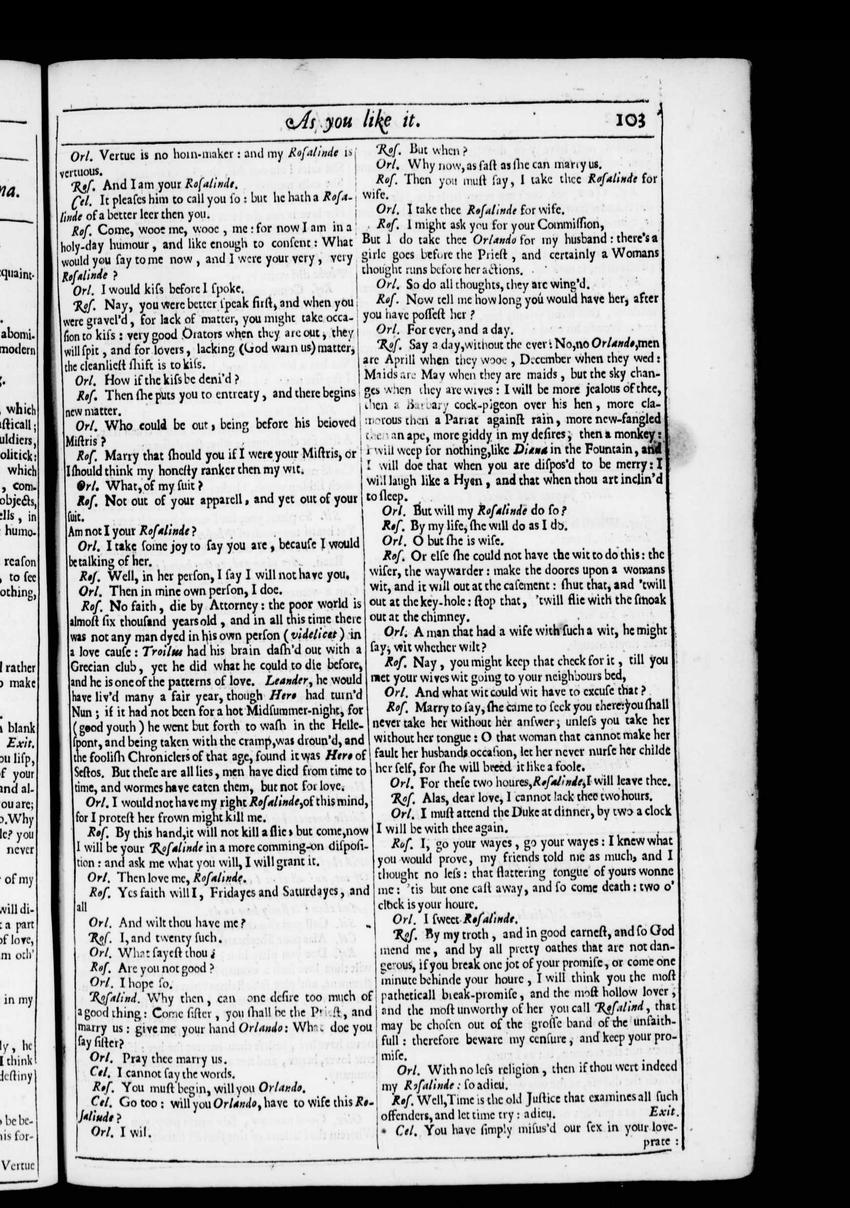 na.
equaint-
abomi-
modern
, which
asticall;
uldiers,
olitick:
which
, com-
objects,
ells, in
humo-
reason
, to see
othing,
l rather
o make
blank
Exit.
ou lisp,
of your
and al-
ou are;
o. Why
le? you
never
r of my
will di-
t a part
of love,
m och'
in my
ly, he
I think
destiny
o be be-
his for-
Vertue
As you like it. 103
Orl. Vertue is no horn-maker: and my Rosalinde is
vertuous.
Ros. And I am your Rosalinde.
Cel. It pleases him to call you so: but he hath a Rosa-
linde of a better leer then you.
Ros. Come, wooe me, wooe, me: for now I am in a
holy-day humour, and like enough to consent: What
would you say to me now, and I were your very, very
Rosalinde?
Orl. I would kiss before I spoke.
Ros. Nay, you were better speak first, and when you
were gravel'd, for lack of matter, you might take occa-
sion to kiss: very good Orators when they are out, they
will spit, and for lovers, lacking (God warn us) matter,
the cleanliest shift is to kiss.
Orl. How if the kiss be deni'd?
Ros. Then she puts you to entreaty, and there begins
new matter.
Orl. Who could be out, being before his beloved
Mistris?
Ros. Marry that should you if I were your Mistris, or
I should think my honesty ranker then my wit.
Orl. What, of my suit?
Ros. Not out of your apparell, and yet out of your
suit.
Am not I your Rosalinde?
Orl. I take some joy to say you are, because I would
be talking of her.
Ros. Well, in her person, I say I will not have you.
Orl. Then in mine own person, I doe.
Ros. No faith, die by Attorney: the poor world is
almost six thousand years old, and in all this time there
was not any man dyed in his own person (videlicet) in
a love cause: Troilus had his brain dash'd out with a
Grecian club, yet he did what he could to die before,
and he is one of the patterns of love. Leander, he would
have liv'd many a fair year, though Hero had turn'd
Nun; if it had not been for a hot Midsummer-night, for
(good youth) he went but forth to wash in the Helle-
spont, and being taken with the cramp, was droun'd, and
the foolish Chroniclers of that age, found it was Hero of
Sestos. But these are all lies, men have died from time to
time, and wormes have eaten them, but not for love.
Orl. I would not have my right Rosalinde, of this mind,
for I protest her frown might kill me.
Ros. By this hand, it will not kill a flie: but come, now
I will be your Rosalinde in a more comming-on disposi-
tion: and ask me what you will, I will grant it.
Orl. Then love me, Rosalinde.
Ros. Yes faith will I, Fridayes and Saturdayes, and
all
Orl. And wilt thou have me?
Ros. I, and twenty such.
Orl. What sayest thou?
Ros. Are you not good?
Orl. I hope so.
Rosalind. Why then, can one desire too much of
a good thing: Come sister, you shall be the Priest, and
marry us: give me your hand Orlando: What doe you
say sister?
Orl. Pray thee marry us.
Cel. I cannot say the words.
Ros. You must begin, will you Orlando.
Cel. Go too: will you Orlando, have to wife this Ro-
salinde?
Orl. I wil.
Ros. But when?
Orl. Why now, as fast as she can marry us.
Ros. Then you must say, I take thee Rosalinde for
wife.
Orl. I take thee Rosalinde for wife.
Ros. I might ask you for your Commission,
But I do take thee Orlando for my husband: there's a
girle goes before the Priest, and certainly a Womans
thought runs before her actions.
Orl. So do all thoughts, they are wing'd.
Ros. Now tell me how long you would have her, after
you have possest her?
Orl. For ever, and a day.
Ros. Say a day, without the ever: No, no Orlando, men
are Aprill when they wooe, December when they wed:
Maids are May when they are maids, but the sky chan-
ges when they are wives: I will be more jealous of thee,
then a Barbary cock-pigeon over his hen, more cla-
morous then a Parrat against rain, more new-fangled
then an ape, more giddy in my desires, then a monkey:
I will weep for nothing, like Diana in the Fountain, and
I will doe that when you are dispos'd to be merry: I
will laugh like a Hyen, and that when thou art inclin'd
to sleep.
Orl. But will my Rosalinde do so?
Ros. By my life, she will do as I do.
Orl. O but she is wise.
Ros. Or else she could not have the wit to do this: the
wiser, the waywarder: make the doores upon a womans
wit, and it will out at the casement: shut that, and 'twill
out at the key-hole: stop that, 'twill flie with the smoak
out at the chimney.
Orl. A man that had a wife with such a wit, he might
say; wit whether wilt?
Ros. Nay, you might keep that check for it, till you
met your wives wit going to your neighbours bed,
Orl. And what wit could wit have to excuse that?
Ros. Marry to say, she came to seek you there: you shall
never take her without her answer; unless you take her
without her tongue: O that woman that cannot make her
fault her husbands occasion, let her never nurse her childe
her self, for she will breed it like a foole.
Orl. For these two houres, Rosalinde, I will leave thee.
Ros. Alas, dear love, I cannot lack thee two hours.
Orl. I must attend the Duke at dinner, by two a clock
I will be with thee again.
Ros. I, go your wayes, go your wayes: I knew what
you would prove, my friends told me as much, and I
thought no less: that flattering tongue of yours wonne
me: 'tis but one cast away, and so come death: two o'
clock is your houre.
Orl. I sweet Rosalinde.
Ros. By my troth, and in good earnest, and so God
mend me, and by all pretty oathes that are not dan-
gerous, if you break one jot of your promise, or come one
minute behinde your houre, I will think you the most
patheticall break-promise, and the most hollow lover,
and the most unworthy of her you call Rosalind, that
may be chosen out of the grosse band of the unfaith-
full: therefore beware my censure, and keep your pro-
mise.
Orl. With no less religion, then if thou wert indeed
my Rosalinde: so adieu.
Ros. Well, Time is the old Justice that examines all such
offenders, and let time try: adieu. Exit.
Cel. You have simply misus'd our sex in your love-
prate: